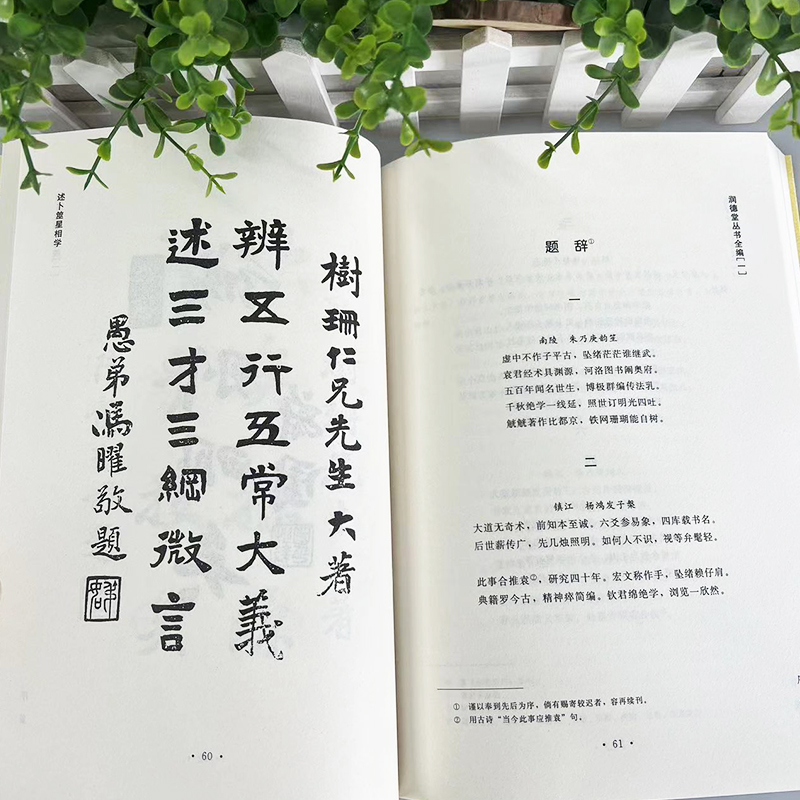 述卜筮星相学
樹珊仁兄先生大著
辨五行五常大義
述三才三綱微言
愚弟馮曜敬題
· 60 ·
润德堂丛书全编［一］
题 辞①
一
南陵 朱乃庚韵笙
虚中不作子平古，坠绪茫茫谁继武。
袁君经术具渊源，河洛图书阐奥府。
五百年闻名世生，博极群编传法乳。
千秋绝学一线延，照世订明光四吐。
觥觥著作比都京，铁网珊瑚能自树。
二
镇江 杨鸿发子槃
大道无奇术，前知本至诚。六爻参易象，四库载书名。
后世薪传广，先几烛照明。如何人不识，视等弁髦轻。
此事合推袁②，研究四十年。宏文称作手，坠绪赖仔肩。
典籍罗今古，精神瘁简编。钦君绵绝学，浏览一欣然。
① 谨以奉到先后为序，倘有赐寄较迟者，容再续刊。
② 用古诗“当今此事应推袁”句。
· 61 ·